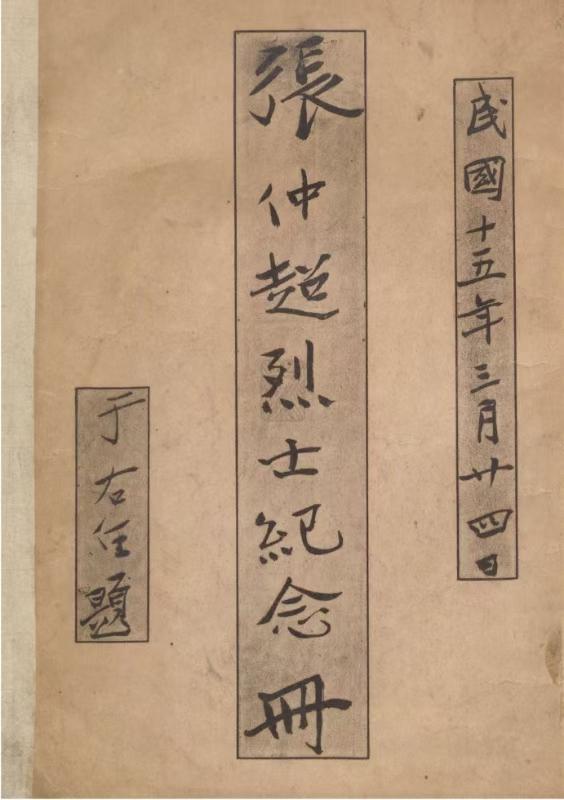 民國十五年三月廿四日
張仲超烈士紀念冊
于右任題